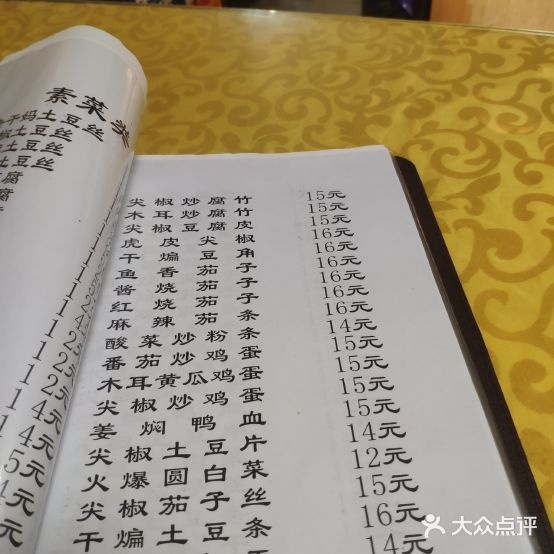 素菜类
干妈土豆丝
椒土豆丝
土豆丝
土豆丝
腐
腐
12元
12元
14元
14元
15元
14元
尖椒炒腐竹 15元
木耳炒腐竹 15元
尖椒豆腐皮 15元
虎皮尖椒 16元
干煸豆角 16元
鱼香茄子 16元
酱烧茄子 16元
红烧茄子 16元
麻辣茄条 14元
酸菜炒粉条 15元
番茄炒鸡蛋 15元
木耳黄瓜鸡蛋 15元
尖椒炒鸡蛋 15元
姜焖鸭血 14元
尖椒土豆片 12元
火爆圆白菜 15元
尖椒茄子丝 16元
干煸土豆条 14元
大众点评